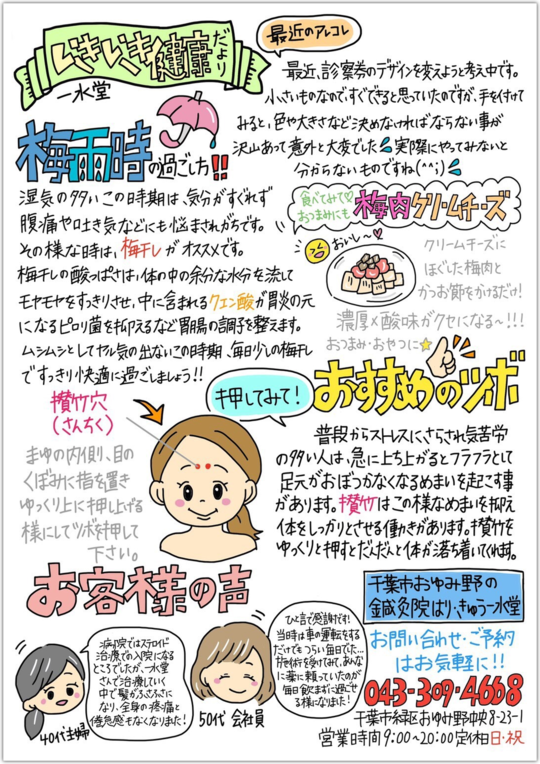 いきいき健康だより
一水堂
最近のアレコレ
最近、診察券のデザインを変えようと考え中です。
小さいものなので、すぐできると思っていたのですが、手を付けて
みると、色や大きさなど決めなければならない事が
沢山あって意外と大変でした 実際にやってみないと
分からないものですね(^^;)
梅雨時の過ごし方!!
湿気の多いこの時期は、気分がすぐれず
腹痛や吐き気などにも悩まされがちです。
その様な時は、梅干しがオススメです。
梅干しの酸っぱさは、体の中の余分な水分を流して
モヤモヤをすっきりさせ、中に含まれるクエン酸が胃炎の元
になるピロリ菌を抑えるなど胃腸の調子を整えます。
ムシムシとしてヤル気の出ないこの時期、毎日少しの梅干し
ですっきり快適に過ごしましょう!!
食べてみて♡
おつまみにも
梅肉クリームチーズ
おいし〜♡
クリームチーズに
ほぐした梅肉と
かつお節をかけるだけ!
濃厚×酸味がクセになる〜!!!
おつまみ・おやつに☆
おすすめのツボ
押してみて!
攅竹穴
(さんちく)
まゆの内側、目の
くぼみに指を置き
ゆっくり上に押し上げる
様にしてツボを押して
下さい。
普段からストレスにさらされ気苦労
の多い人は、急に立ち上がるとフラフラとして
足元がおぼつかなくなるめまいを起こす事
があります。攅竹はこの様なめまいを抑え
体をしっかりとさせる働きがあります。攅竹を
ゆっくりと押すとだんだんと体が落ち着いてくれます。
お客様の声
病院ではステロイド
治療での入院になる
ところでしたが、一水堂
さんで治療していく
中で髪がふさふさに
なり、全身の疼痛と
倦怠感もなくなりました!
40代主婦
ひと言で感謝です!
当時は車の運転をする
だけでもつらい毎日でした…
が施術を受けてみて、あんな
に薬に頼っていたのが
毎日飲まずに過ごせ
る様になりました!
50代 会社員
千葉市おゆみ野の
鍼灸院はり・きゅう一水堂
お問い合わせ・ご予約
はお気軽に!!
043-309-4668
千葉市緑区おゆみ野中央8-23-1
営業時間 9:00〜20:00 定休日 日・祝